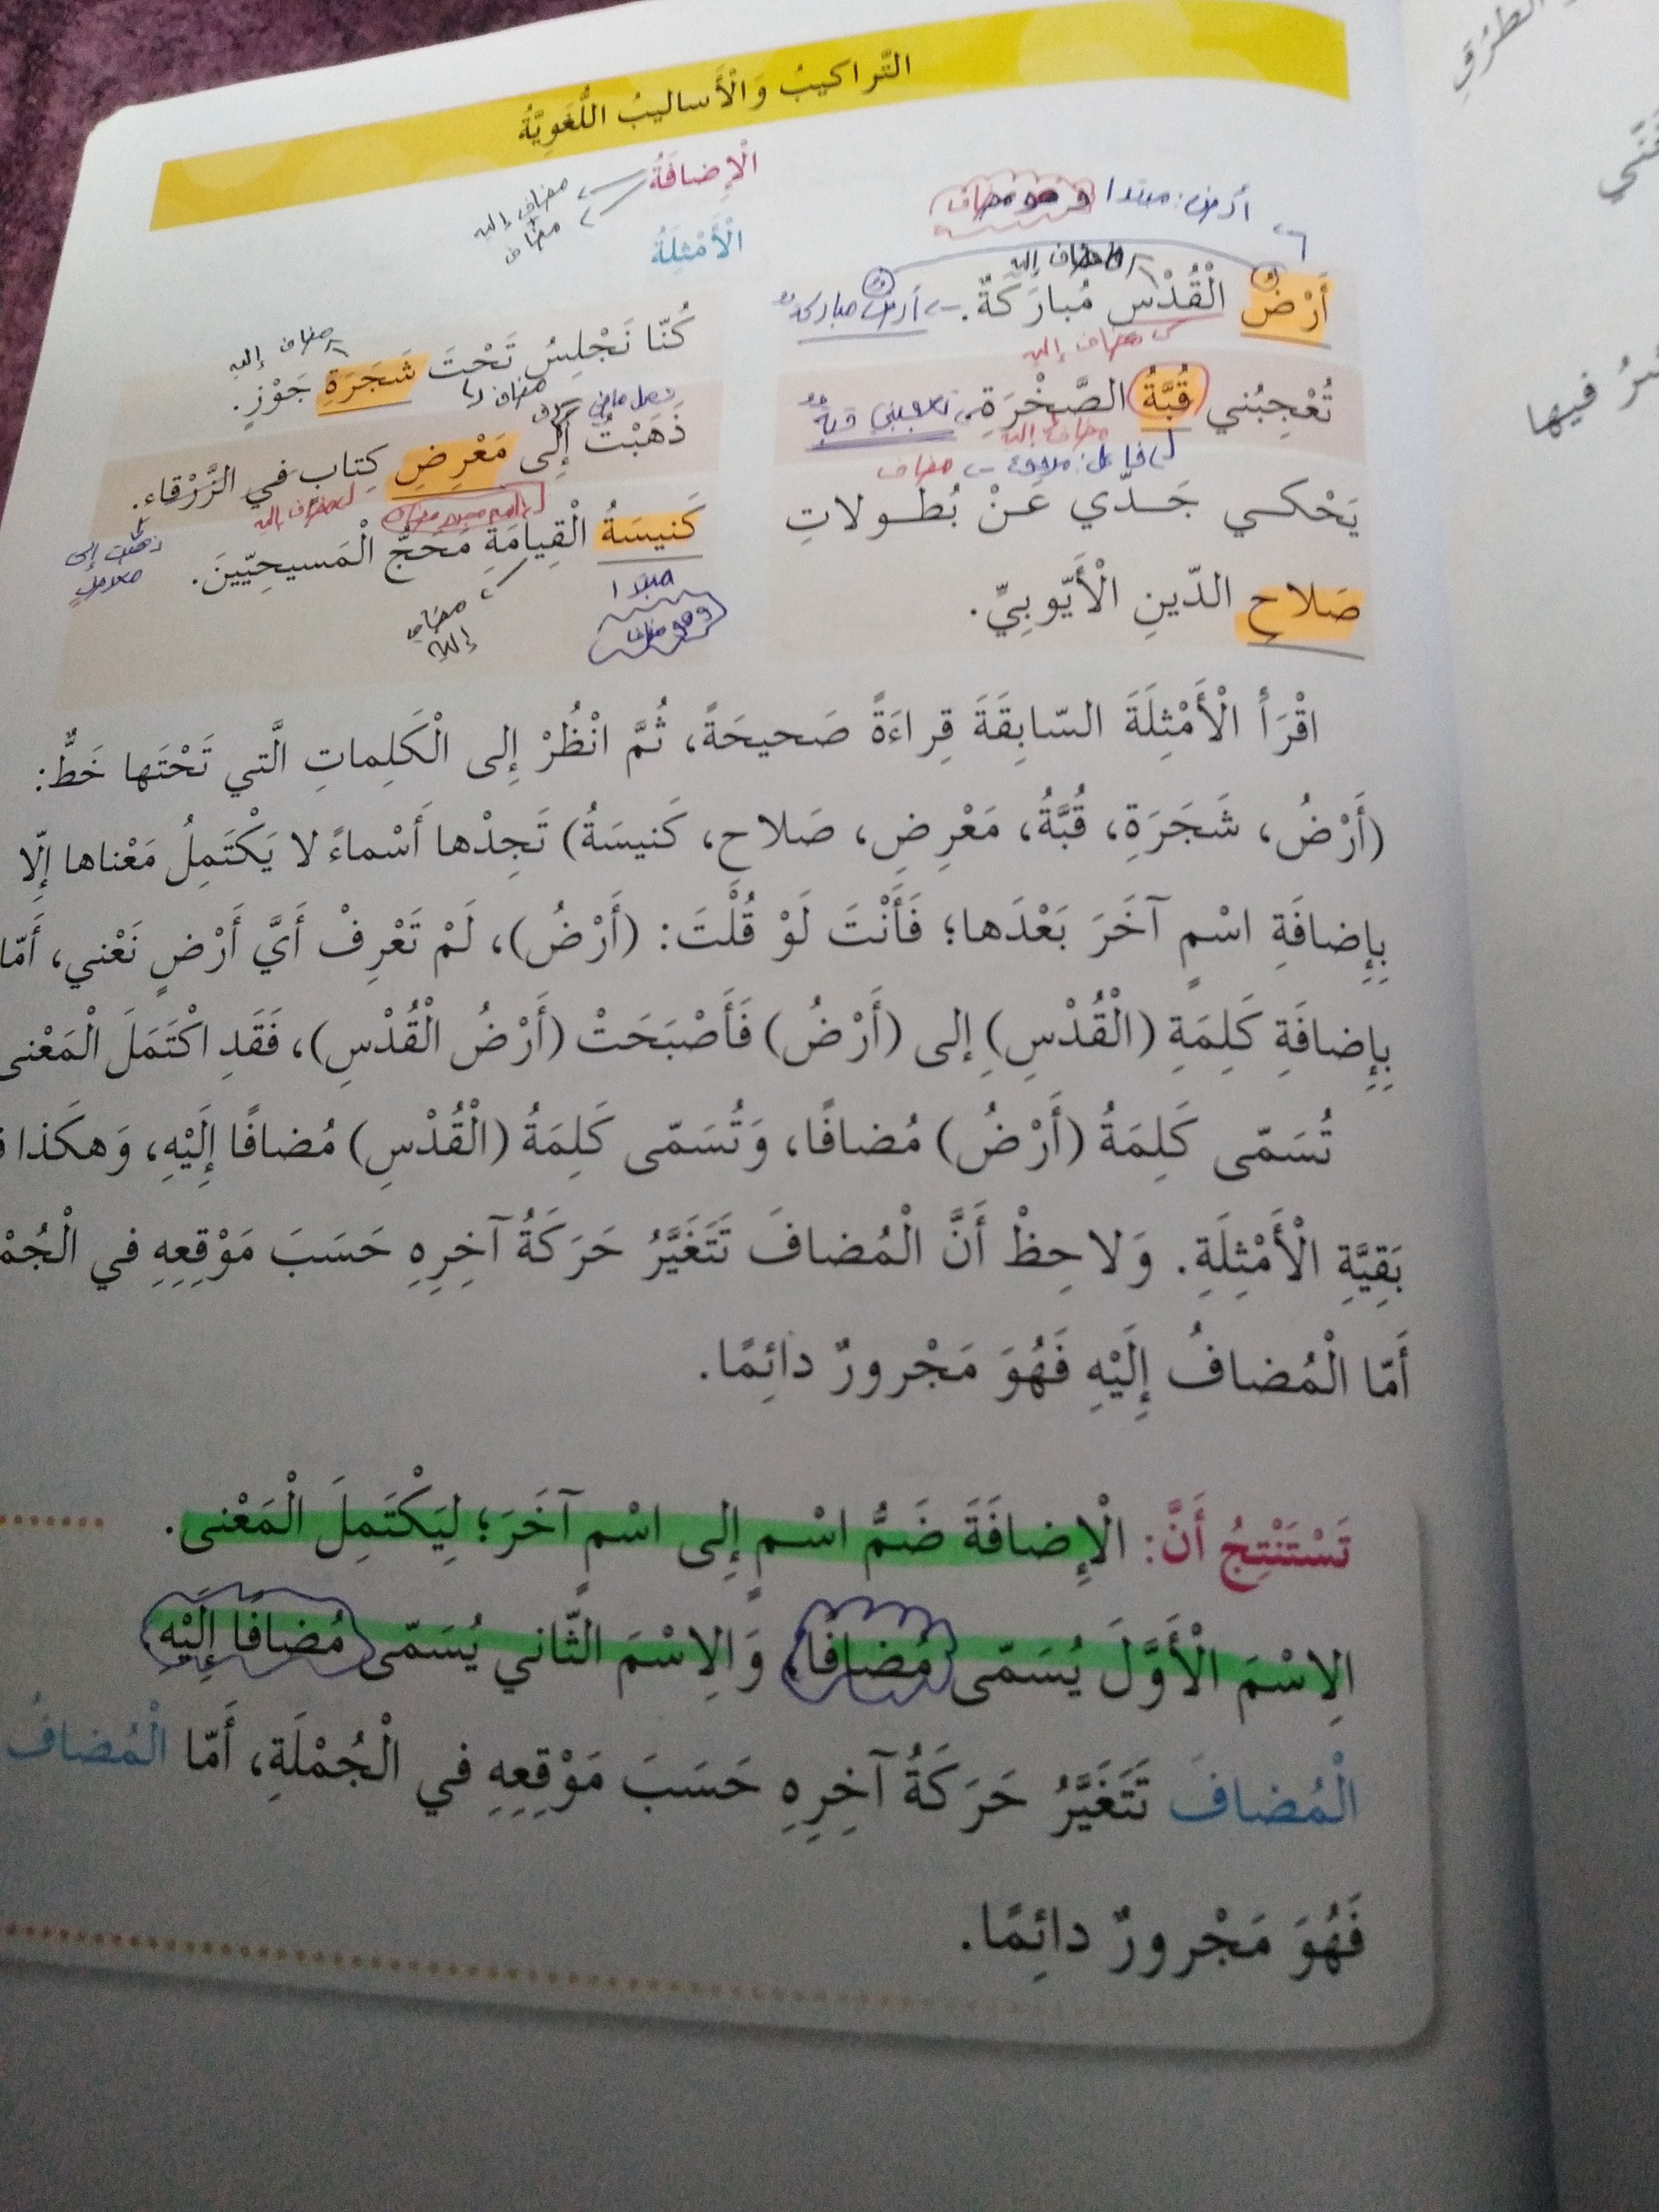 التَّراكيبُ وَالْأَساليبُ اللُّغَوِيَّةُ
الْإِضافَةُ
مضاف إليه
مضاف
الْأَمْثِلَةُ
أرض: مبتدأ وهو مضاف
مضاف إليه
أَرْضُ الْقُدْسِ مُبارَكَةٌ. أرضٌ مباركةٌ
مضاف إليه
تُعْجِبُني قُبَّةُ الصَّخْرَةِ. تعجبني قبةٌ
مضاف إليه
فاعل: مرفوع مضاف
يَحْكي جَدّي عَنْ بُطولاتِ
صَلاحِ الدّينِ الْأَيّوبِيِّ.
مضاف إليه
كُنّا نَجْلِسُ تَحْتَ شَجَرَةِ جَوْزٍ.
فعل ماضي
مضاف
ذَهَبْتُ إِلى مَعْرِضِ كِتاب في الزَّرْقاء.
اسم مجرور مضاف
مضاف إليه
ذهبت إلى
معرض
كَنيسَةُ الْقِيامَةِ مَحَجُّ الْمَسيحِيّينَ.
مبتدأ
وهو مضاف
مضاف
إليه
اقْرَأْ الْأَمْثِلَةَ السّابِقَةَ قِراءَةً صَحيحَةً، ثُمَّ انْظُرْ إِلى الْكَلِماتِ الَّتي تَحْتَها خَطٌّ:
(أَرْضُ، شَجَرَةِ، قُبَّةُ، مَعْرِضِ، صَلاحِ، كَنيسَةُ) تَجِدْها أَسْماءً لا يَكْتَمِلُ مَعْناها إِلّا
بِإِضافَةِ اسْمٍ آخَرَ بَعْدَها؛ فَأَنْتَ لَوْ قُلْتَ: (أَرْضُ)، لَمْ تَعْرِفْ أَيَّ أَرْضٍ نَعْني، أَمّا
بِإِضافَةِ كَلِمَةِ (الْقُدْسِ) إِلى (أَرْضُ) فَأَصْبَحَتْ (أَرْضُ الْقُدْسِ)، فَقَدِ اكْتَمَلَ الْمَعْنى
تُسَمّى كَلِمَةُ (أَرْضُ) مُضافًا، وَتُسَمّى كَلِمَةُ (الْقُدْسِ) مُضافًا إِلَيْهِ، وَهكَذا
بَقِيَّةِ الْأَمْثِلَةِ. وَلاحِظْ أَنَّ الْمُضافَ تَتَغَيَّرُ حَرَكَةُ آخِرِهِ حَسَبَ مَوْقِعِهِ في الْجُمْ
أَمّا الْمُضافُ إِلَيْهِ فَهُوَ مَجْرورٌ دائِمًا.
تَسْتَنْتِجُ أَنَّ: الْإِضافَةَ ضَمُّ اسْمٍ إِلى اسْمٍ آخَرَ؛ لِيَكْتَمِلَ الْمَعْنى.
الِاسْمَ الْأَوَّلَ يُسَمّى مُضافًا، وَالِاسْمَ الثّاني يُسَمّى مُضافًا إِلَيْهِ.
الْمُضافَ تَتَغَيَّرُ حَرَكَةُ آخِرِهِ حَسَبَ مَوْقِعِهِ في الْجُمْلَةِ، أَمّا الْمُضافُ
فَهُوَ مَجْرورٌ دائِمًا.
الطُّرُقِ
فيها